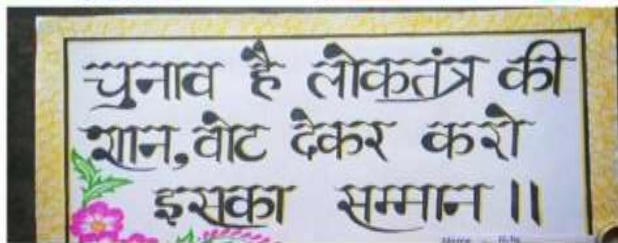 चुनाव है लोकतंत्र की
शान, वोट देकर करो
इसका सम्मान ||